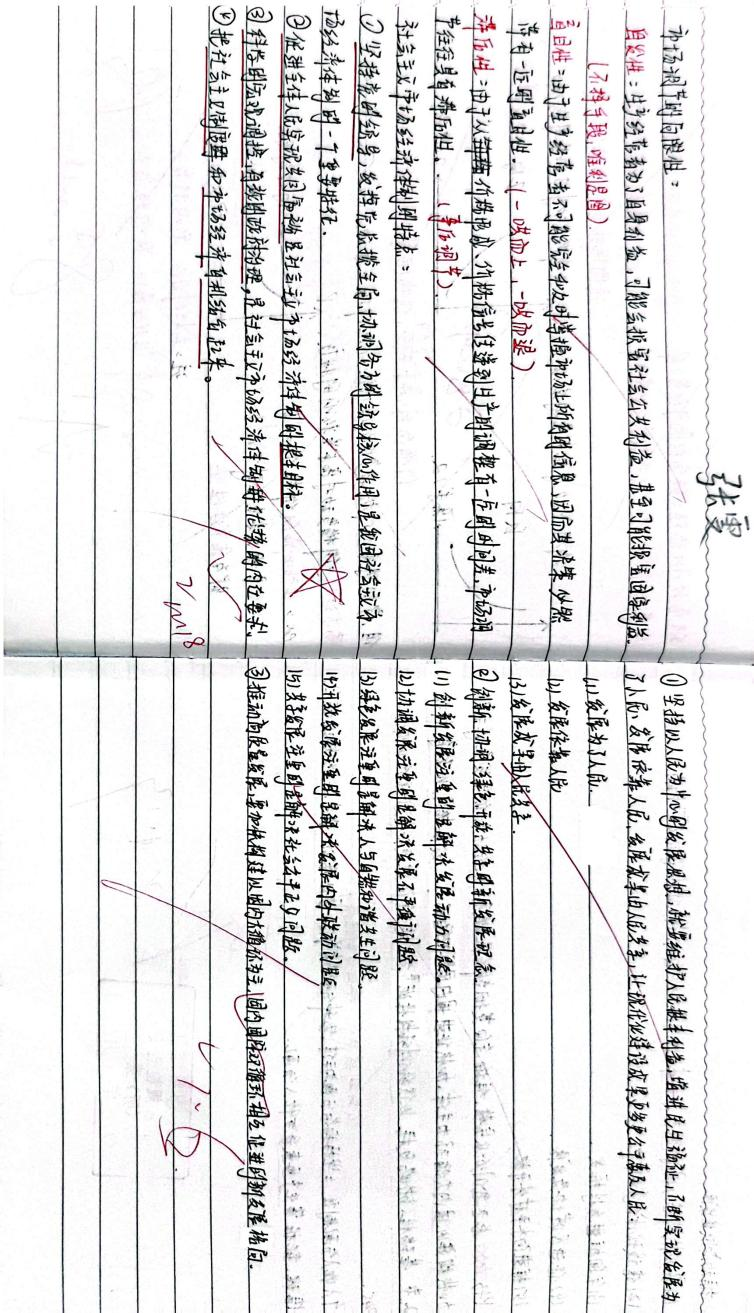 张雯
市场调节的局限性：
自发性：生产经营者为了自身利益，可能会损害社会公共利益，甚至可能损害国家利益。
（不择手段，唯利是图）
盲目性：由于生产经营者不可能完全和及时掌握市场上所有的信息，因而其决策必然
带有一定的盲目性。（一哄而上，一哄而退）
滞后性：由于从价格形成、价格信号传递到生产的调整有一定的时间差，市场调
节往往具有滞后性。（事后调节）
社会主义市场经济体制的特点：
①坚持党的领导，发挥党总揽全局、协调各方的领导核心作用，是我国社会主义市
场经济体制的一个重要特征。
②促进全体人民实现共同富裕是社会主义市场经济体制的根本目标。
③科学的宏观调控，有效的政府治理，是社会主义市场经济体制优势的内在要求。
④把社会主义制度和市场经济有机结合起来。
①坚持以人民为中心的发展思想，就要维护人民根本利益，增进民生福祉，不断实现发展为
了人民、发展依靠人民、发展成果由人民共享，让现代化建设成果更多更公平惠及人民。
(1)发展为了人民
(2)发展依靠人民
(3)发展成果由人民共享。
②创新、协调、绿色、开放、共享的新发展理念
(1)创新发展注重的是解决发展动力问题。
(2)协调发展注重的是解决发展不平衡问题。
(3)绿色发展注重的是解决人与自然和谐共生问题。
(4)开放发展注重的是解决发展内外联动问题
(5)共享发展注重的是解决社会公平正义问题。
③推动高质量发展，要加快构建以国内大循环为主、国内国际双循环相互促进的新发展格局。